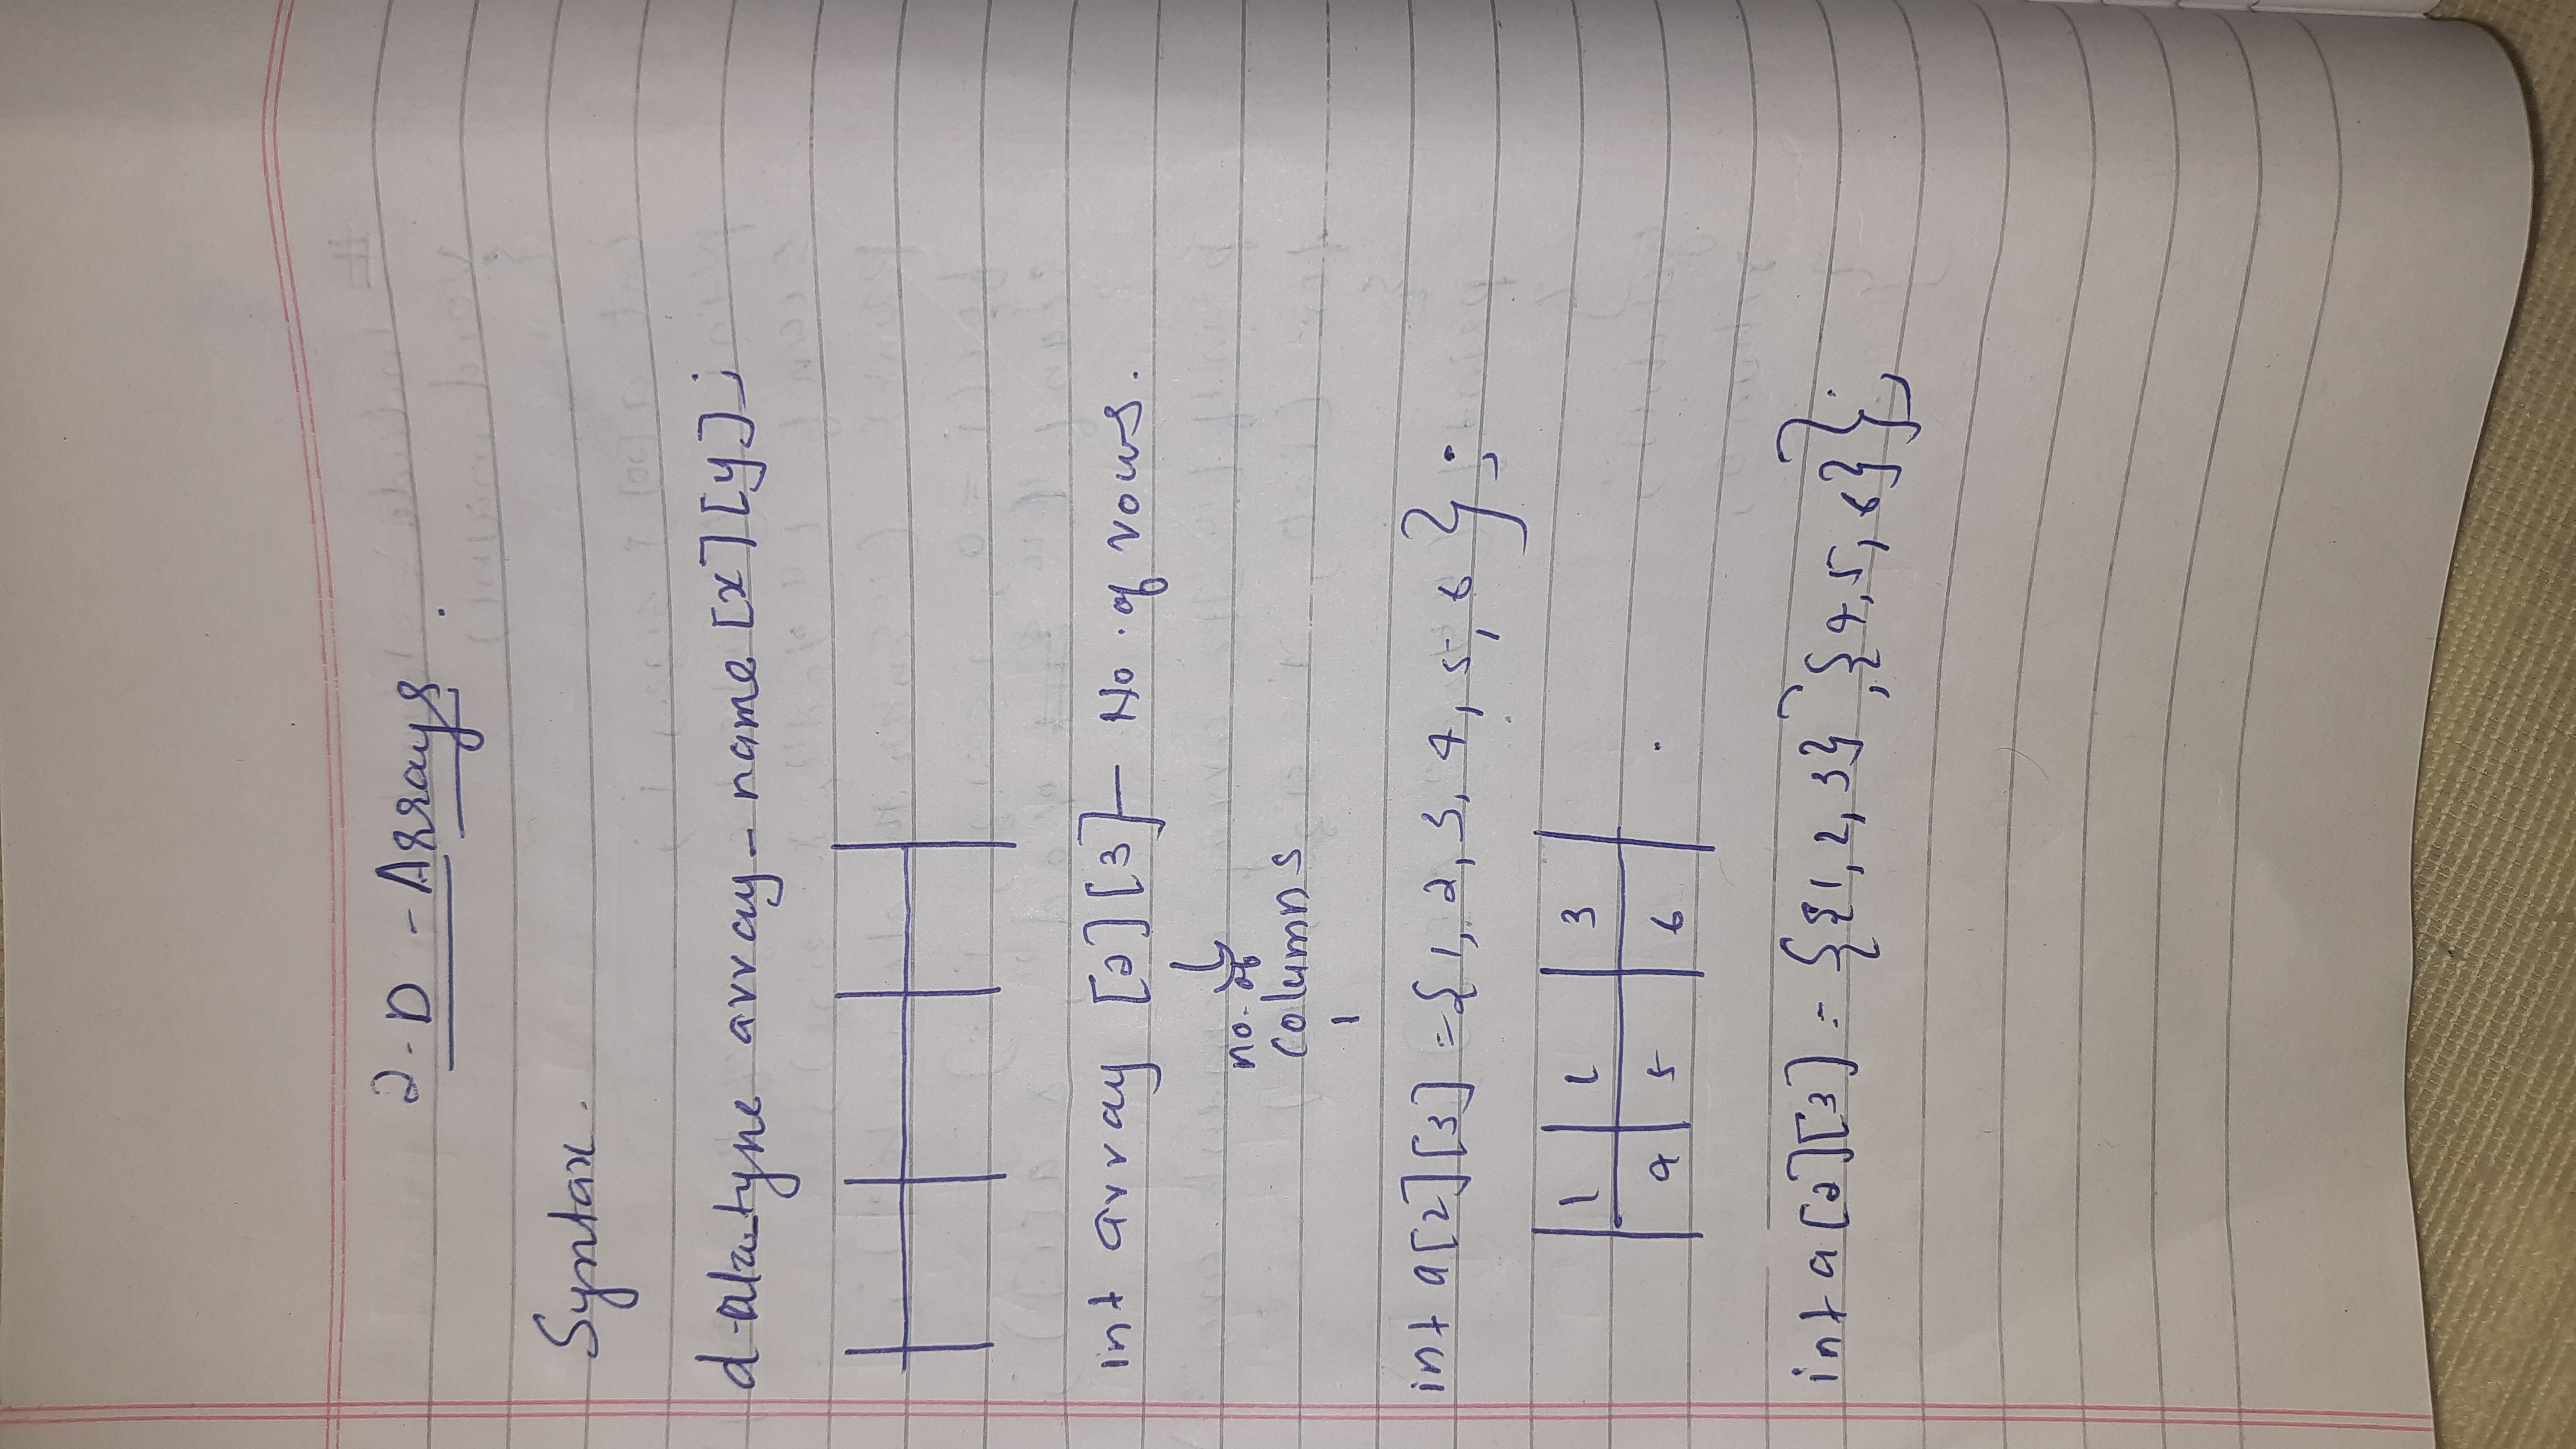 2-D-Arrays.
Syntax.
data-type array-name [x][y];
int array [2][3]— No. of rows.
no. of
columns
int a[2][3] = {1, 2, 3, 4, 5, 6};
1 2 3
4 5 6
int a[2][3] = {{1, 2, 3}, {4, 5, 6}};